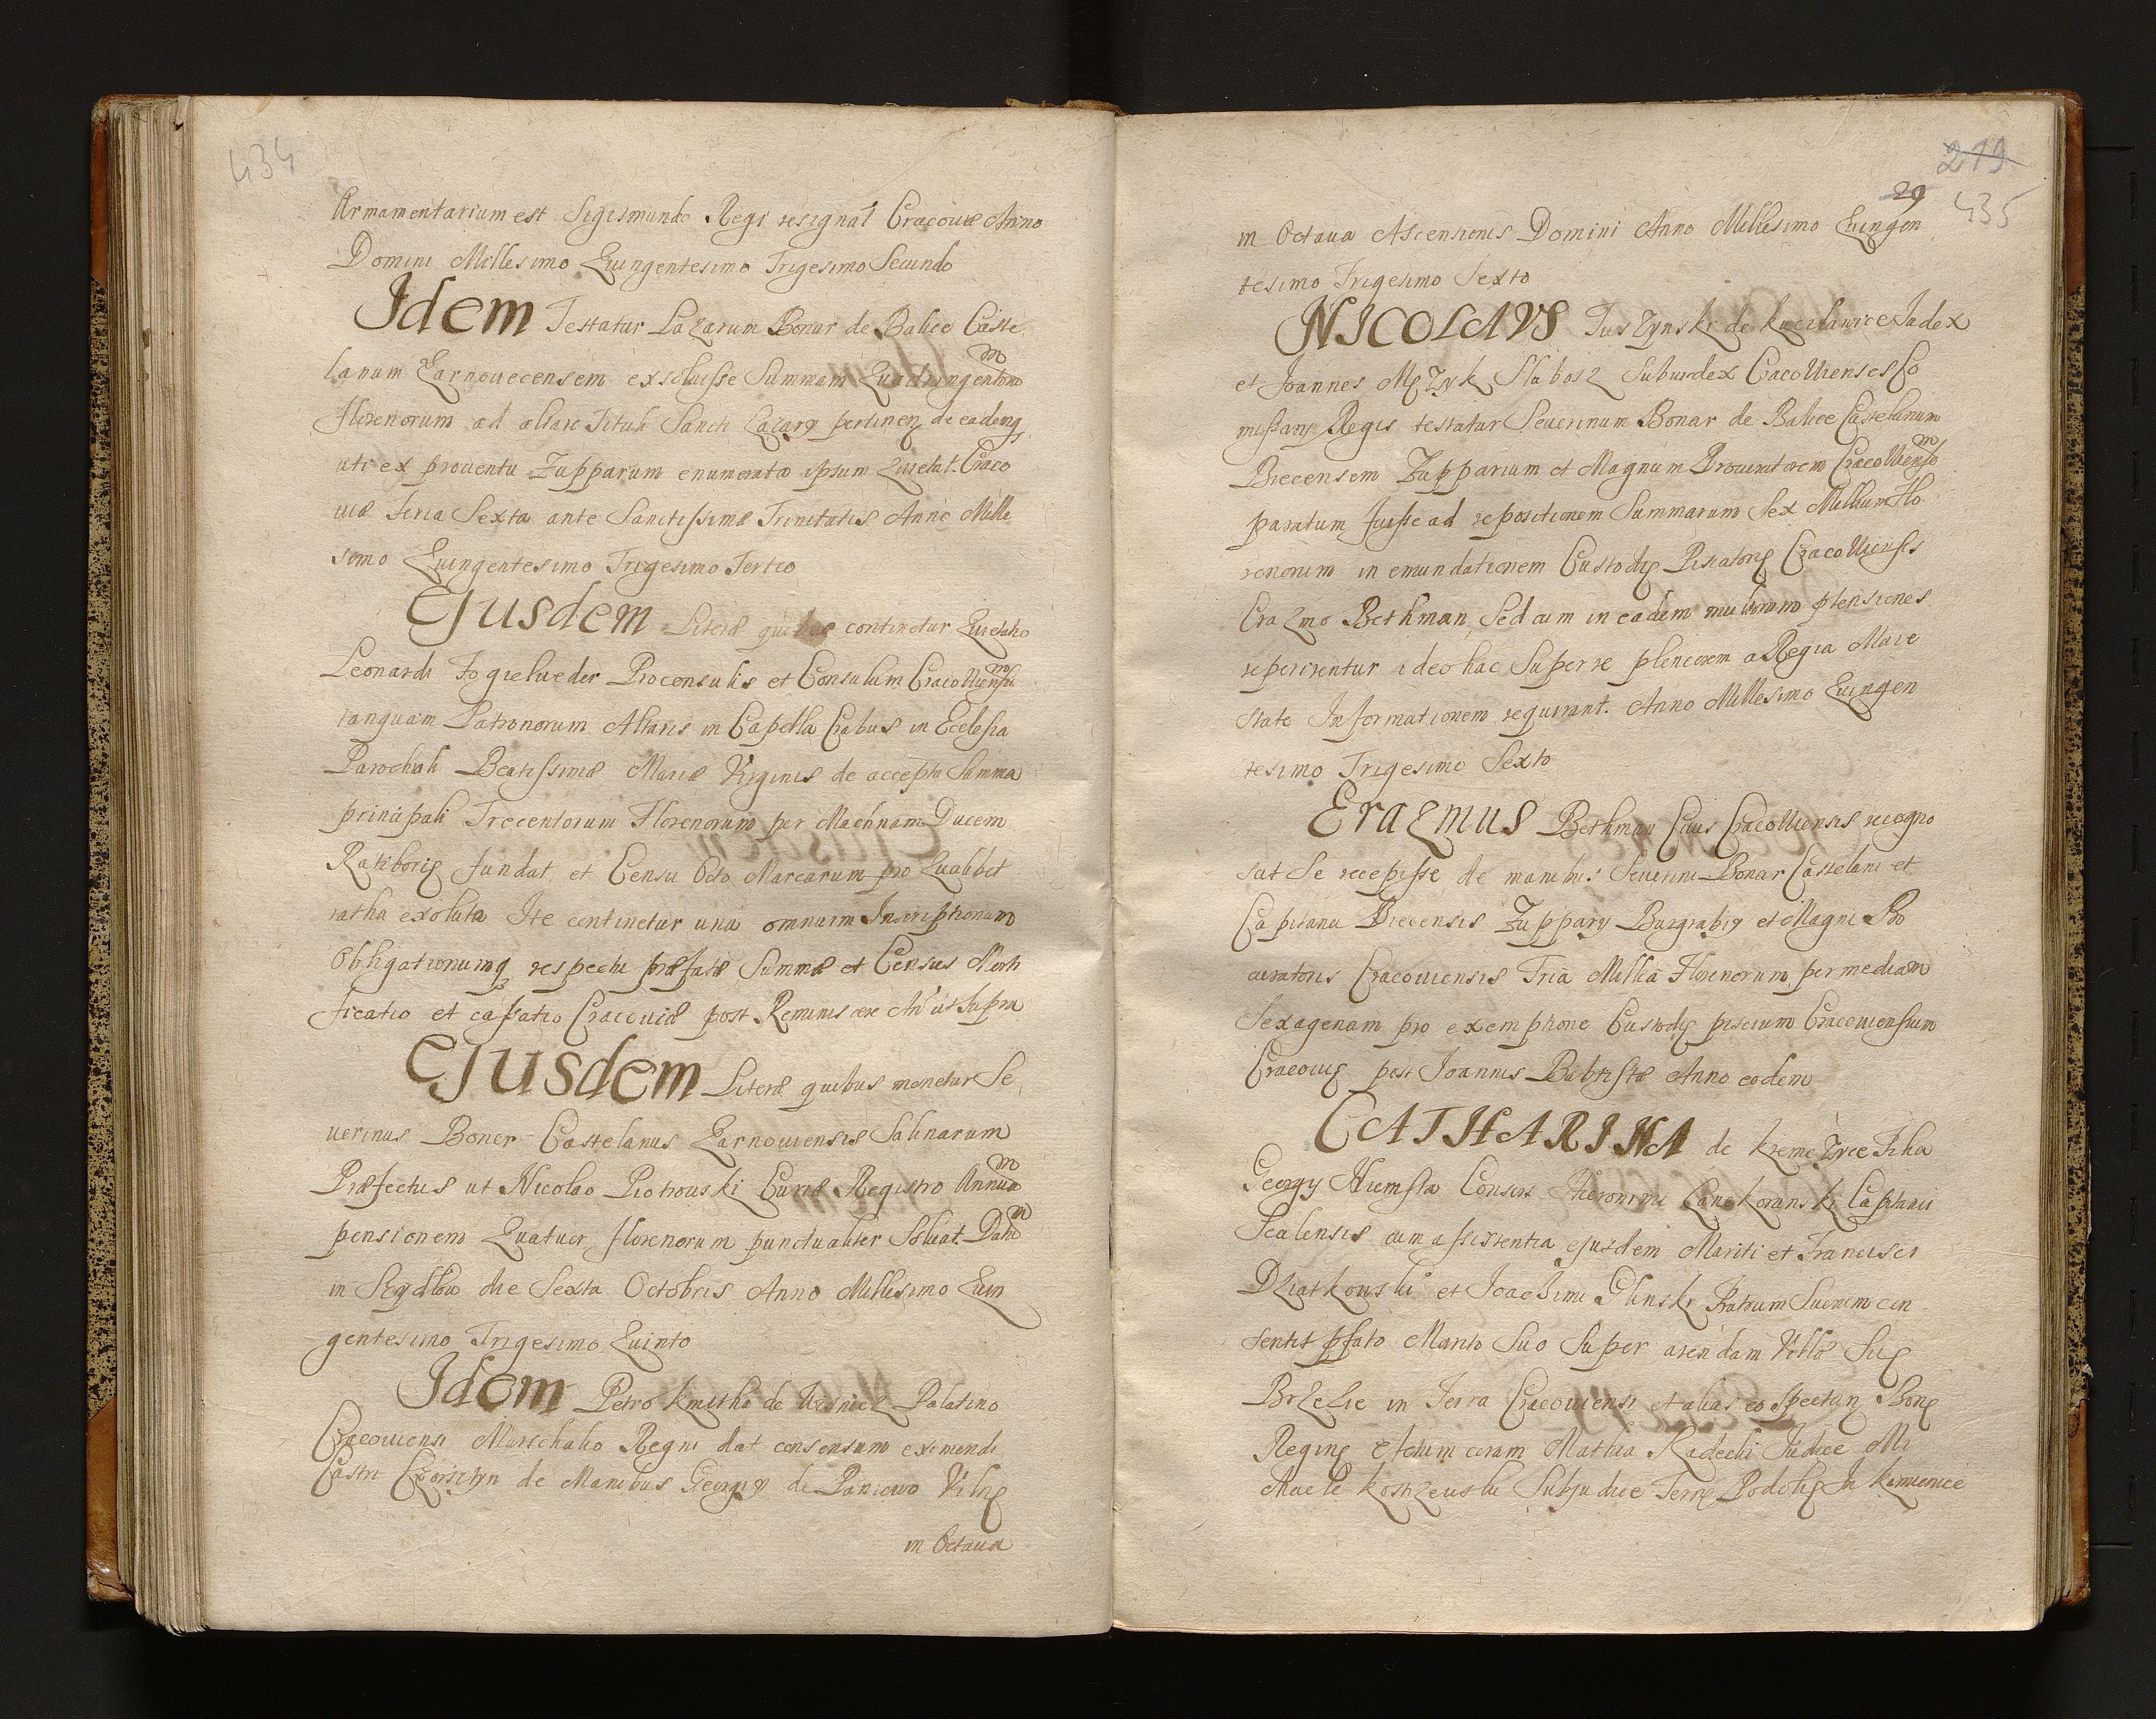 434
Armamentarium est Sigismundo Regi resignat Cracoviæ Anno
Domini Millesimo Quingentesimo Trigesimo Secundo
Idem Testatur Lazarum Bonar de Balice Caste
lanum Zarnovecensem exsoluisse Summam Quadringentom
florenorum ad altare Tituli Sancti Lazary pertinen de eademq
uti ex proventu Zupparum enumerata ipsum Quietat. Craco
uiæ Feria Sexta ante Sanctissimæ Trinitatis Anno Mille
simo Quingentesimo Trigesimo Tertio
Ejusdem Literæ quibus continetur Quietatio
Leonardi Fogielueder Proconsulis et Consulum
tanquam Patronorum Altaris in Capella Crabus in Eclesia
Parochali Beatissimæ Mariæ Virginis de accepta Summa
principali Trecentorum Florenorum per Machnam Ducem
Ratiborię fundat et Censu Octo Marcarum pro Quadrbet
ratha exoluta Ite continetur una omnium Inscriptionum
Obligationumq respectu præfatæ Summæ et Census Morti
ficatio et cassatio Cracoviæ post Reminiscere An ut supra
Ejusdem Literæ quibus monetur Se
uerinus Boner Castelanus Zarnouiensis Salinarum
Præfectus ut Nicolao Piotrouski Curiæ Registro Annua
pensionem Quatuor florenorum punctualiter Soluat. Datm
in Szydlow die Sexta Octobris Anno Millesimo Quin
gentesimo Trigesimo Quinto
Idem Petro Kmitha de Wisnicz Palatino
Cracouiensi Marschalco Regni dat consensum eximendi
Castri Czorsztyn de Manibus Georgy de Paniewo Vilnę
in Octaua
219
29
435
in Octaua Ascensionis Domini Anno Millesimo Quingen
tesimo Trigesimo Sexto
NICOLAVS de Judex
et Joannes Slabosz Subiudex Cracoviensesco
missary Regis testatur Seuerinum Bonar de Balice Castelanum
Biecensem Zupparium et Magnum Procuratorem
paratum fuisse ad repositionem Summarum Sex Millium Flo
renorum in emundationem Custodię Piscatorię Cracoviensis
Erazmo Bethman, Sed cum in eadem multorum ptensiones
reperirentur ideo hac Super re pleniorem a Regia Maie
state Informationem requirant. Anno Millesimo Quingen
tesimo Trigesimo Sexto
Erazmus Bethman Ciuis Cracoviensis recogno
scit Se recepisse de manibus Seuerini Bonar Castelani et
Capitanei Biecensis Zuppary Burgraby et Magni Pro
curatoris Cracouiensis Tria Millia Florenorum per mediam
Sexagenam pro exemptione Custodię piscium Cracouiensium
Cracouię post Joannis Babtistæ Anno eodem
CATHARINA de Filia
Georgy Consors Hieronimi Lanckoranski Capitanei
Scalensis cum assistentia ejusdem Mariti et Francisci
Dziatkouski et Joachimi Glinski Fratrum Suorum con
sentit pfato Marito Suo Super arendam Villæ Suę
Brzezie in Terra Cracouiensi et alias eo Spectan Bonę
Reginę Actum coram Mathia Radecki Judice Mi
chaele Subjudice Terrę Podolię In Kamienice